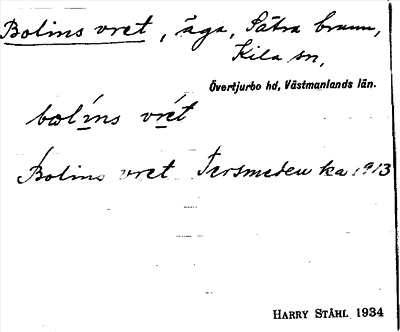 Bolins vret, äga, Sätra brunn,
Kila sn,
Övertjurbo hd, Västmanlands län.
bolins vret
Bolins vret Tersmeden ka 1913
HARRY STÅHL 1934